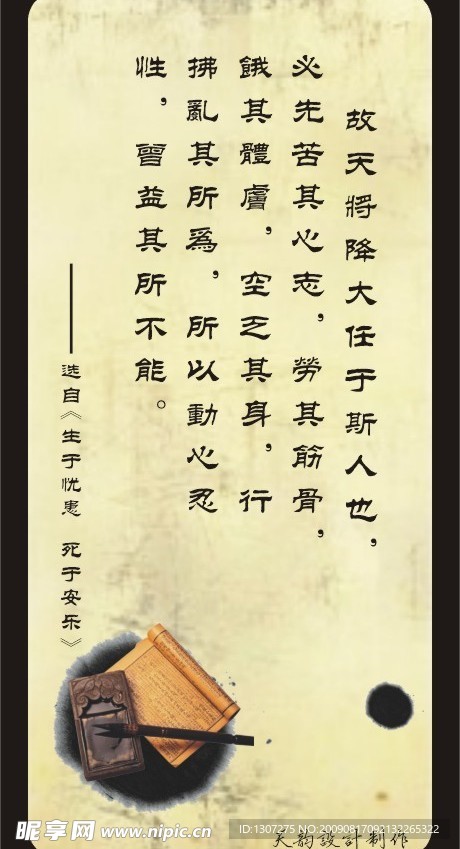 故天將降大任于斯人也，
必先苦其心志，勞其筋骨，
餓其體膚，空乏其身，行
拂亂其所爲，所以動心忍
性，曾益其所不能。
——选自《生于忧患 死于安乐》
天韵設計制作
昵享网 www.nipic.cn
ID:1307275 NO:20090817092132265322